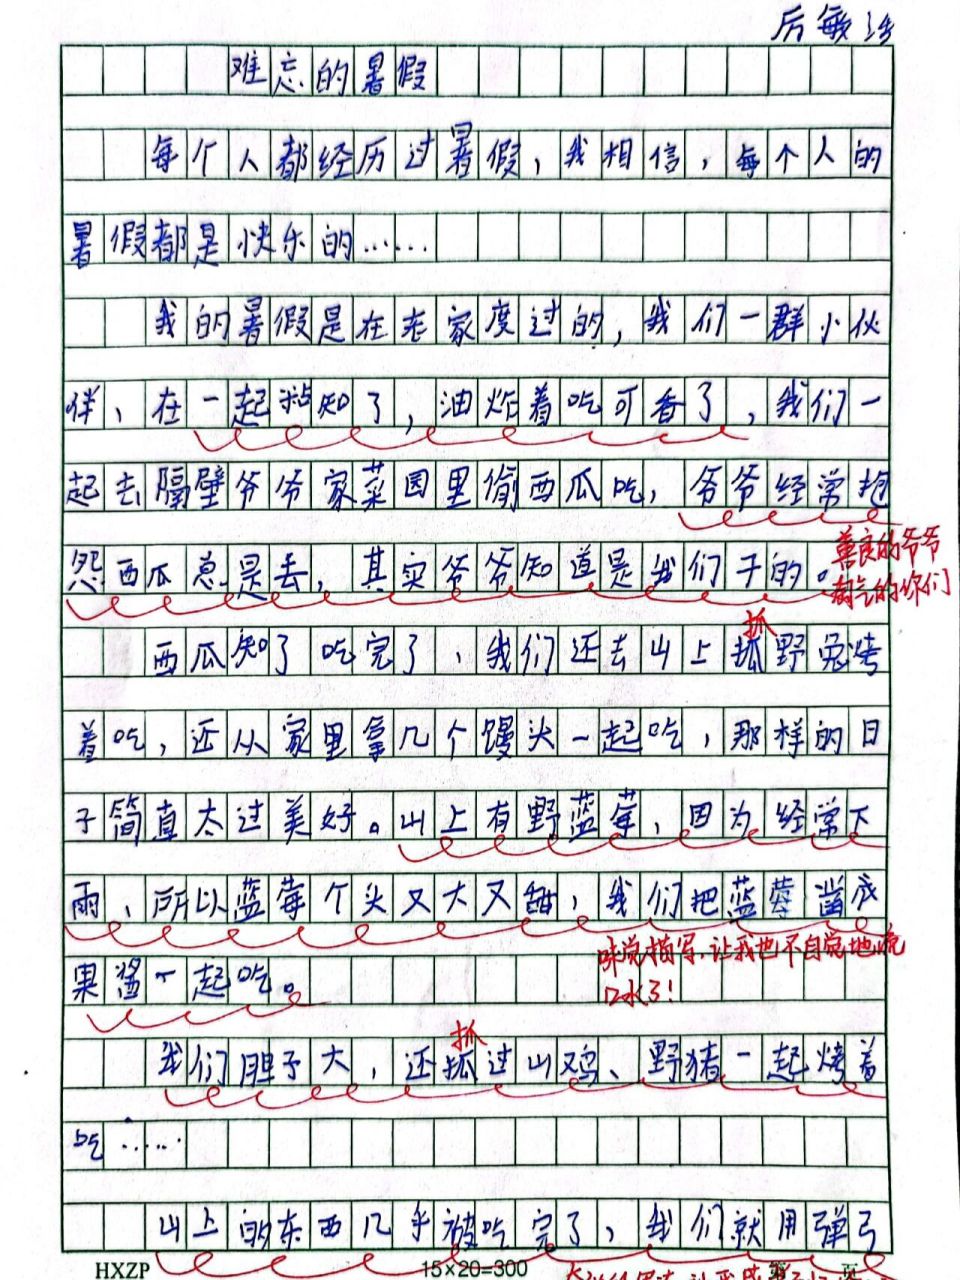 厉敏
难忘的暑假
每个人都经历过暑假，我相信，每个人的
暑假都是快乐的……
我的暑假是在老家度过的，我们一群小伙
伴，在一起粘知了，油炸着吃可香了，我们一
起去隔壁爷爷家菜园里偷西瓜吃，爷爷经常抱
怨西瓜总是丢，其实爷爷知道是我们干的。
善良的爷爷
淘气的你们
抓
西瓜知了吃完了，我们还去山上抓野兔烤
着吃，还从家里拿几个馒头一起吃，那样的日
子简直太过美好。山上有野蓝莓，因为经常下
雨，所以蓝莓个头又大又甜，我们把蓝莓凿成
味觉描写，让我也不自觉地流
口水了！
果酱一起吃。
抓
我们胆子大，还抓过山鸡、野猪一起烤着
吃……
山上的东西几乎被吃完了，我们就用弹弓
HXZP 15×20=300 第 页